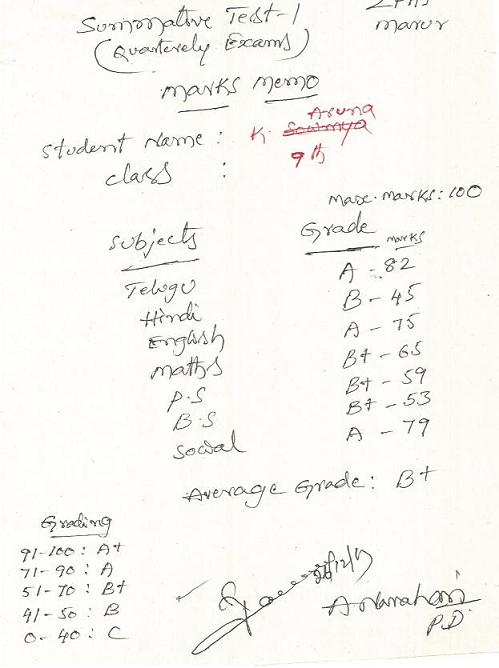 Summative Test-1
ZPHS
(Quarterely Exams)
Marur
Marks Memo
Student Name : K. Aruna
Class : 9th
Max. Marks: 100
Subjects Grade Marks
Telugu A - 82
Hindi B - 45
English A - 75
Maths B+ - 65
P.S B+ - 59
B.S B+ - 53
Social A - 79
Average Grade : B+
Grading
91-100 : A+
71-90 : A
51-70 : B+
41-50 : B
0-40 : C
P.D